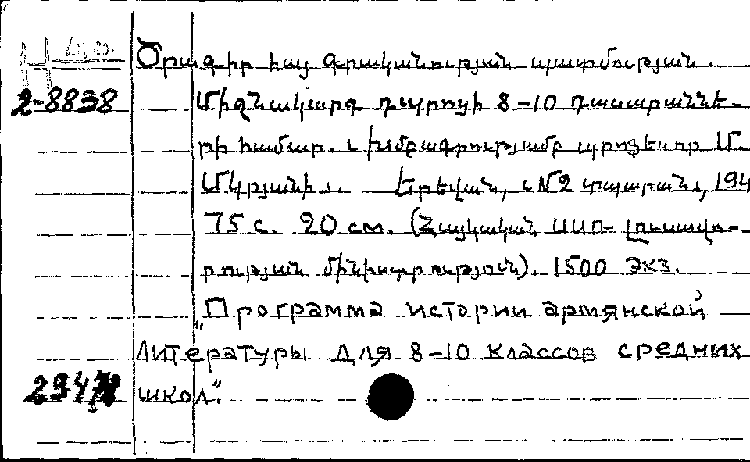 Ծրագիր հայ գրականության պատմության.
2-8838 Միջնակարգ դպրոցի 8-10 դասարաննե-
րի համար. խմբագրությամբ պրոֆեսոր Մ.
Մկրյանի. Երևան, №2 տպարան, 194
75 с. 20 см. (Հայկական ՍՍՌ Լուսավո-
րության մինիստրություն). 1500 экз.
„Программа истории армянской
литературы для 8-10 классов средних
школ".